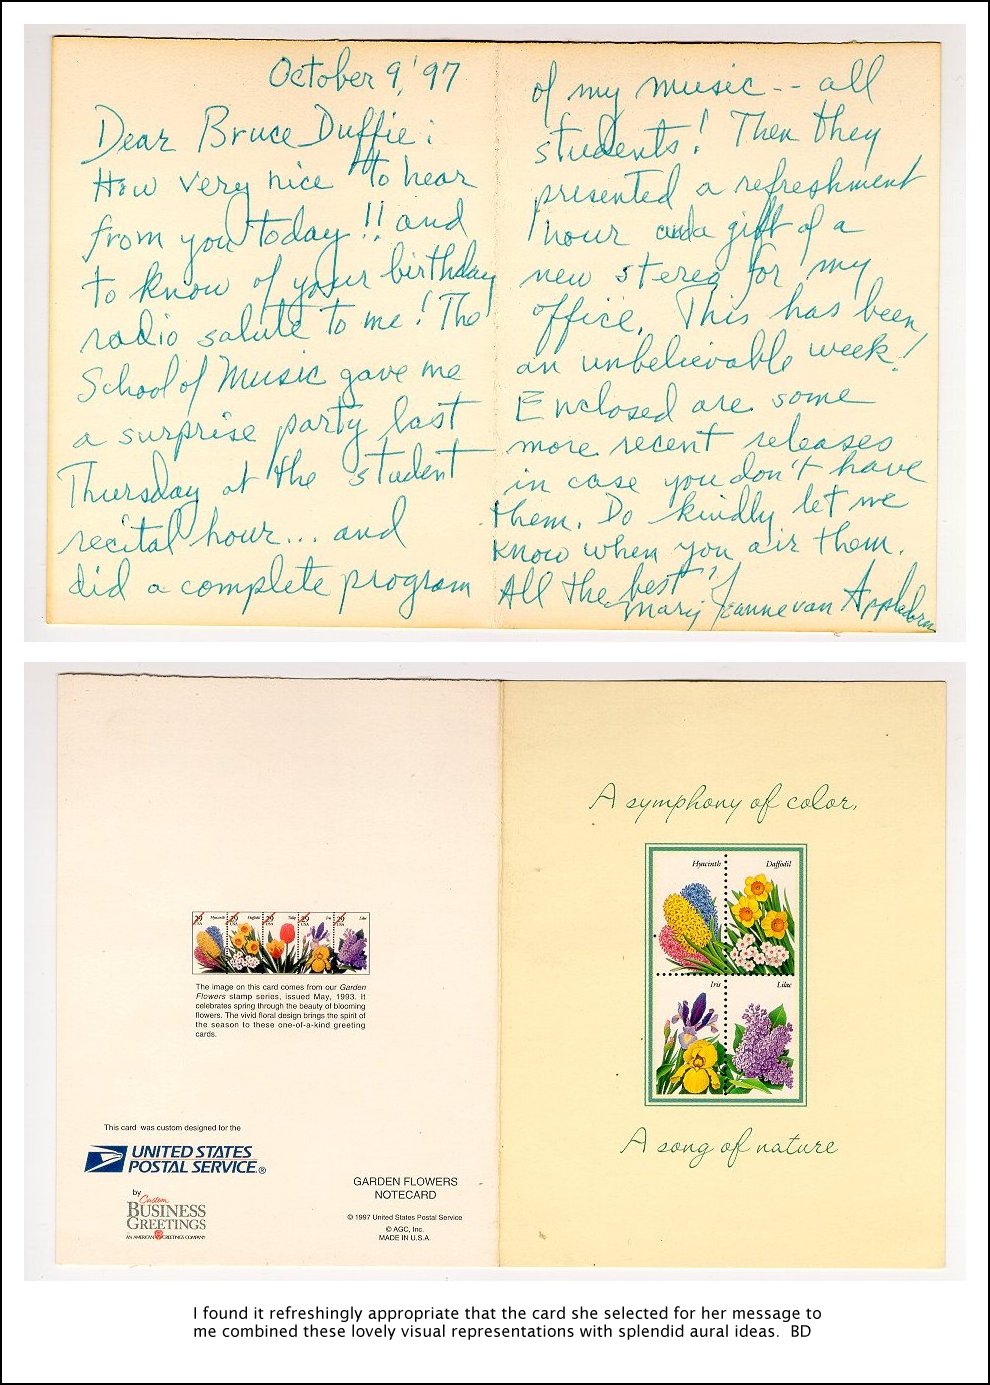 October 9, '97
Dear Bruce Duffie:
How very nice to hear
from you today!! and
to know of your birthday
radio salute to me! The
School of Music gave me
a surprise party last
Thursday at the student
recital hour... and
did a complete program
of my music -- all
students! Then they
presented a refreshment
hour and a gift of a
new stereo for my
office. This has been
an unbelievable week!
Enclosed are some
more recent releases
in case you don't have
them. Do kindly let me
know when you air them.
All the best,
Mary Jeanne van Appledorn
A symphony of color,
Hyacinth
Daffodil
Iris
Lilac
A song of nature
29 USA Hyacinth
29 USA Daffodil
29 USA Tulip
29 USA Iris
29 USA Lilac
The image on this card comes from our Garden
Flowers stamp series, issued May, 1993. It
celebrates spring through the beauty of blooming
flowers. The vivid floral design brings the spirit of
the season to these one-of-a-kind greeting
cards.
This card was custom designed for the
UNITED STATES
POSTAL SERVICE®
by
Custom
BUSINESS
GREETINGS
AN AMERICAN GREETINGS COMPANY
GARDEN FLOWERS
NOTECARD
© 1997 United States Postal Service
© AGC, Inc.
MADE IN U.S.A.
I found it refreshingly appropriate that the card she selected for her message to
me combined these lovely visual representations with splendid aural ideas. BD